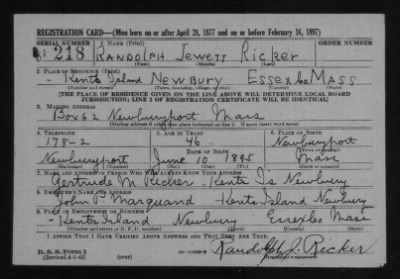 REGISTRATION CARD—(Men born on or after April 28, 1877 and on or before February 16, 1897)
SERIAL NUMBER 1. NAME (Print)
U 218 RANDOLPH JEWETT RICKER
(First) (Middle) (Last)
2. PLACE OF RESIDENCE (Print)
- Kents Island NEWBURY ESSEX Co MASS
(Number and street) (Town, township, village, or city) (County) (State)
[THE PLACE OF RESIDENCE GIVEN ON THE LINE ABOVE WILL DETERMINE LOCAL BOARD
JURISDICTION; LINE 2 OF REGISTRATION CERTIFICATE WILL BE IDENTICAL]
3. MAILING ADDRESS
Box 62 Newburyport Mass
[Mailing address if other than place indicated on line 2. If same insert word same]
4. TELEPHONE 5. AGE IN YEARS 6. PLACE OF BIRTH
178-2 46 Newburyport
DATE OF BIRTH
Newburyport June 10 1895 Mass
(Exchange) (Number) (Mo.) (Day) (Yr.) (State or country)
7. NAME AND ADDRESS OF PERSON WHO WILL ALWAYS KNOW YOUR ADDRESS
Gertrude M. Ricker - Kents Is Newbury
8. EMPLOYER'S NAME AND ADDRESS
John P. Marquand - Kents Island Newbury
9. PLACE OF EMPLOYMENT OR BUSINESS
- Kents Island Newbury Essex Co Mass
(Number and street or R. F. D. number) (Town) (County) (State)
I AFFIRM THAT I HAVE VERIFIED ABOVE ANSWERS AND THAT THEY ARE TRUE.
D. S. S. Form 1
(Revised 4-1-42) (over) Randolph J. Ricker